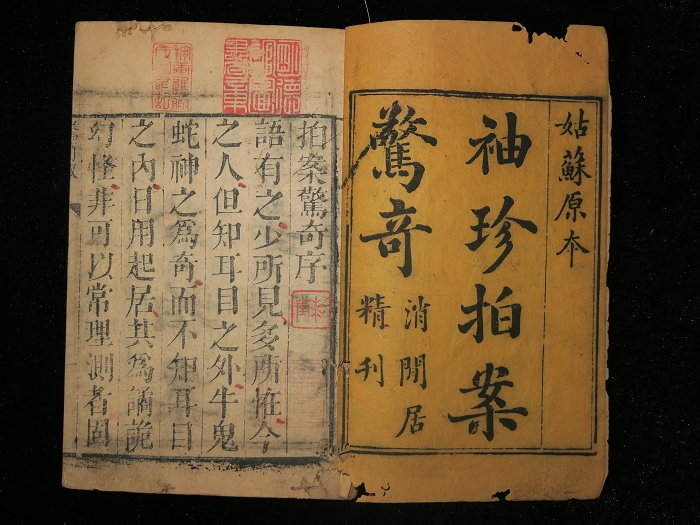 姑蘇原本
袖珍拍案
驚奇
消閒居
精刊
拍案驚奇序
語有之少所見多所怪今
之人但知耳目之外牛鬼
蛇神之為奇而不知耳目
之內日用起居其為譎詭
幻怪非可以常理測者固